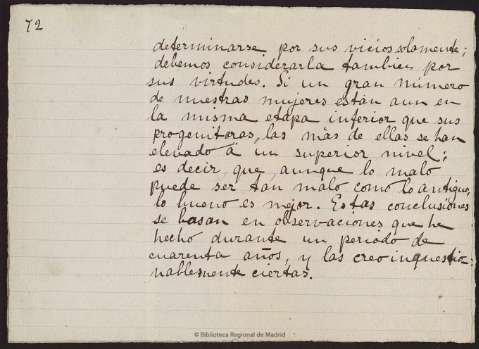 72
determinarse por sus vicios solamente;
debemos considerarla tambien por
sus virtudes. Si un gran número
de nuestras mujeres están aun en
la misma etapa inferior que sus
progenitoras, las más de ellas se han
elevado á un superior nivel;
es decir, que, aunque lo malo
puede ser tan malo como lo antiguo,
lo bueno es mejor. Estas conclusiones
se basan en observaciones que he
hecho durante un periodo de
cuarenta años, y las creo inquestio-
nablemente ciertas.
© Biblioteca Regional de Madrid